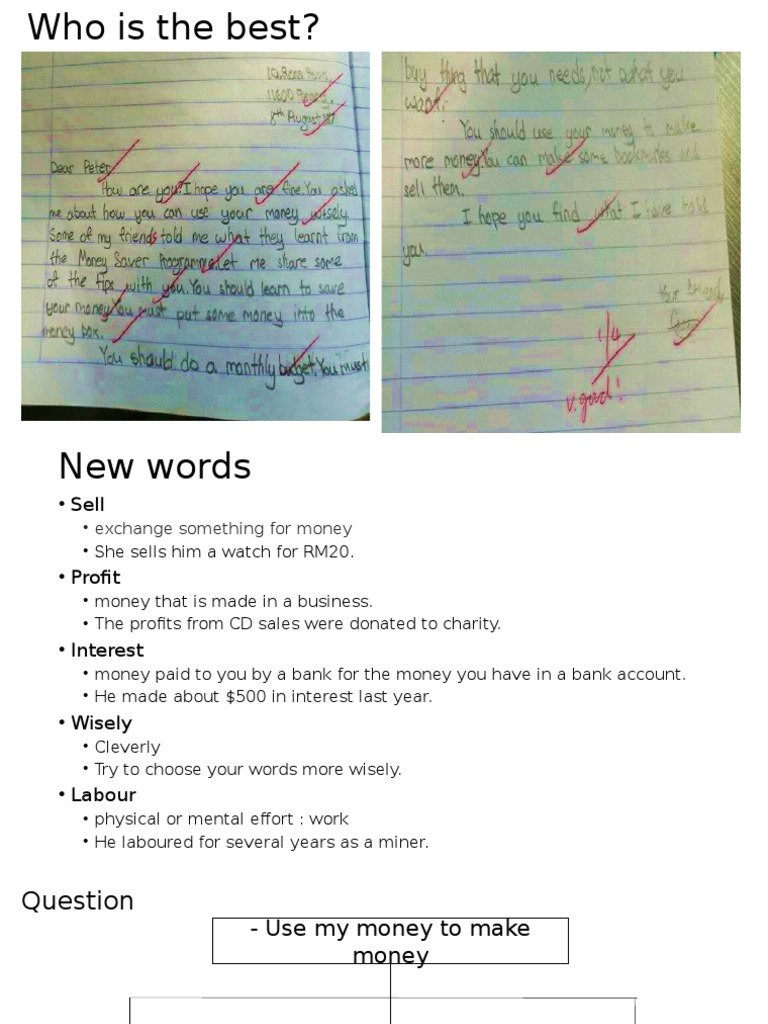 Who is the best?
11600
8th August
Dear Peter,
How are you? I hope you are fine. You asked
me about how you can use your money wisely.
Some of my friends told me what they learnt from
the Money Saver Programme. Let me share some
of the tips with you. You should learn to save
your money. You must put some money into the
money box.
You should do a monthly budget. You must
buy thing that you needs, not what you
want.
You should use your money to make
more money. You can make some bookmarks and
sell them.
I hope you find what I have told
you.
Your friend,
v. good!
New words
• Sell
• exchange something for money
• She sells him a watch for RM20.
• Profit
• money that is made in a business.
• The profits from CD sales were donated to charity.
• Interest
• money paid to you by a bank for the money you have in a bank account.
• He made about $500 in interest last year.
• Wisely
• Cleverly
• Try to choose your words more wisely.
• Labour
• physical or mental effort : work
• He laboured for several years as a miner.
Question
- Use my money to make
money